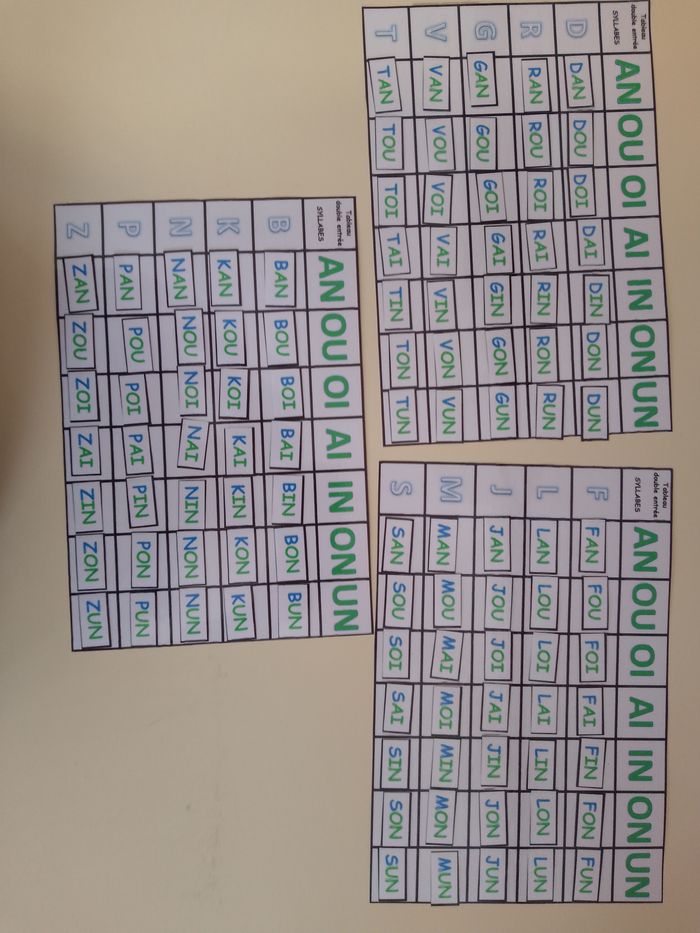 Tableau
double entrée
SYLLABES
AN OU OI AI IN ON UN
D DAN DOU DOI DAI DIN DON DUN
R RAN ROU ROI RAI RIN RON RUN
G GAN GOU GOI GAI GIN GON GUN
V VAN VOU VOI VAI VIN VON VUN
T TAN TOU TOI TAI TIN TON TUN
Tableau
double entrée
SYLLABES
AN OU OI AI IN ON UN
F FAN FOU FOI FAI FIN FON FUN
L LAN LOU LOI LAI LIN LON LUN
J JAN JOU JOI JAI JIN JON JUN
M MAN MOU MAI MOI MIN MON MUN
S SAN SOU SOI SAI SIN SON SUN
Tableau
double entrée
SYLLABES
AN OU OI AI IN ON UN
B BAN BOU BOI BAI BIN BON BUN
K KAN KOU KOI KAI KIN KON KUN
N NAN NOU NOI NAI NIN NON NUN
P PAN POU POI PAI PIN PON PUN
Z ZAN ZOU ZOI ZAI ZIN ZON ZUN